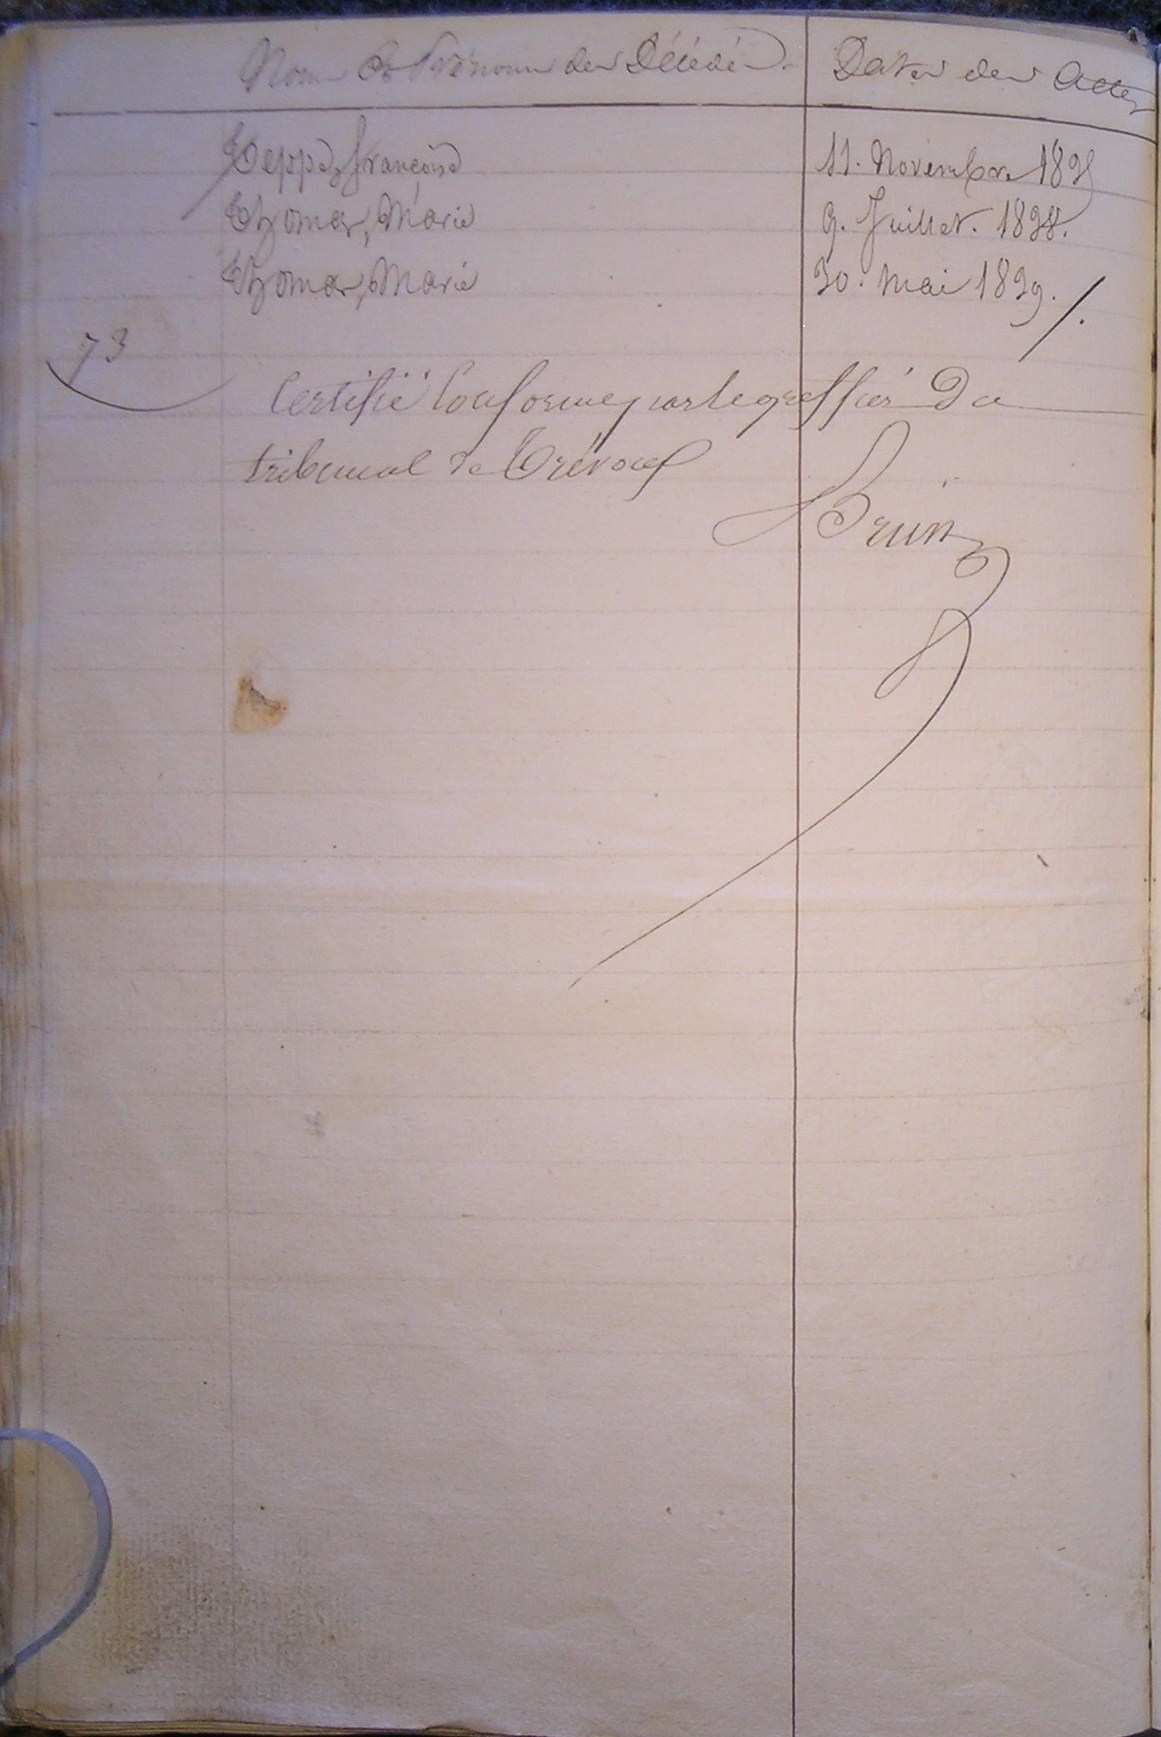 Noms et Prénoms des Décédés. Dates des Actes
Teppe, Françoise 11. Novembre 182
Thomas, Marie 9. Juillet. 1828.
Thomas, Marie 30. Mai 1829. /.
73
Certifié Conforme par le greffier Du
tribunal de Trévoux
Brun